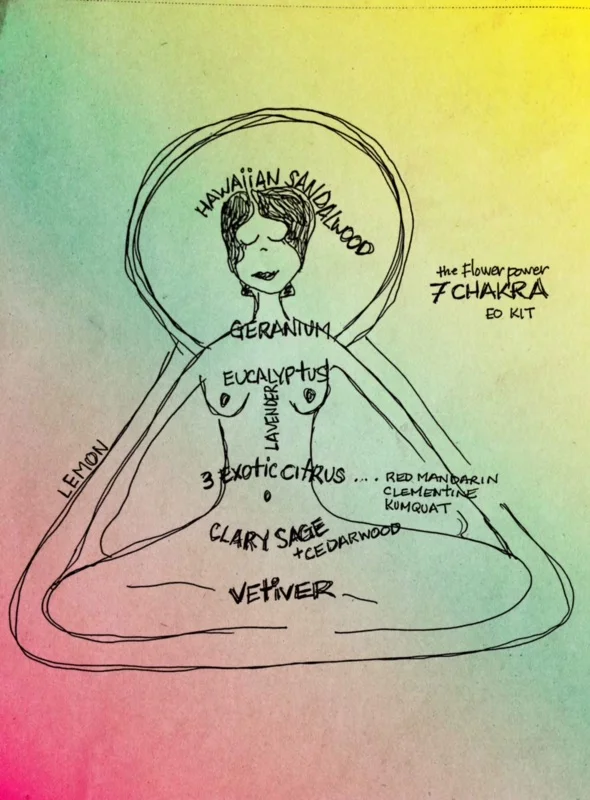 HAWAiiAN SANDALWOOD
the Flower power
7 CHAKRA
EO KIT
GERANIUM
EUCALYPtUS
LAVENDER
LEMON
3 Exotic CitRUS .... RED MANDARIN
CLEMENTINE
KUMQUAT
CLARY SAGE
+CEDARWOOD
VEtiVER